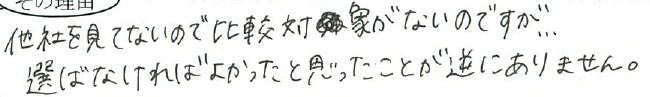 その理由
他社を見てないので比較対象がないのですが…
選ばなければよかったと思ったことが逆にありません。